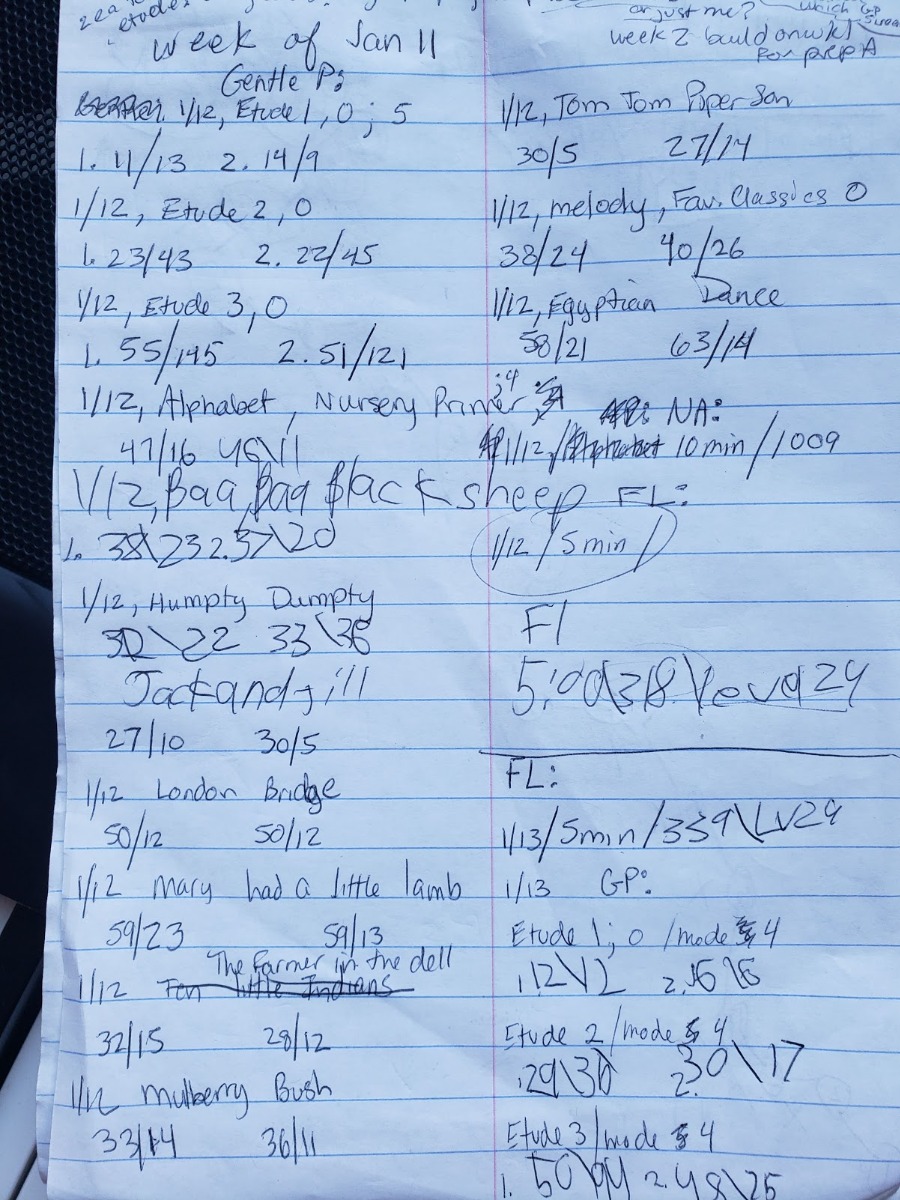 etudes
or just me? which
week 2 build on wk1
For prep A
week of Jan 11
Gentle P:
1/12, Etude 1, 0; 5
1. 11/13 2. 14/9
1/12, Etude 2, 0
1. 23/43 2. 22/45
1/12, Etude 3, 0
1. 55/145 2. 51/121
1/12, Alphabet, Nursery Primer ;4
47/16 46\11
1/12, Baa, Baa Black sheep
1. 38\23 2. 37\20
1/12, Humpty Dumpty
32\22 33\36
Jack and jill
27/10 30/5
1/12 London Bridge
50/12 50/12
1/12 Mary had a little lamb
59/23 59/13
The Farmer in the dell
1/12 Ten little Indians
32/15 28/12
1/12 Mulberry Bush
33/14 36/11
1/12, Tom Tom Piper Son
30/5 27/14
1/12, melody, Fav. Classics 0
38/24 40/26
1/12, Egyptian Dance
58/21 63/14
NA:
1/12, 10 min/1009
FL:
1/12 / 5 min /
Fl
5:00\318\level 24
FL:
1/13/5min/339\LV24
1/13 GP:
Etude 1; 0 /mode 4
1. 12\12 2. 16\6
Etude 2 /mode 4
1. 29\36 2. 30\17
Etude 3 /mode 4
1. 50\94 2. 48\25